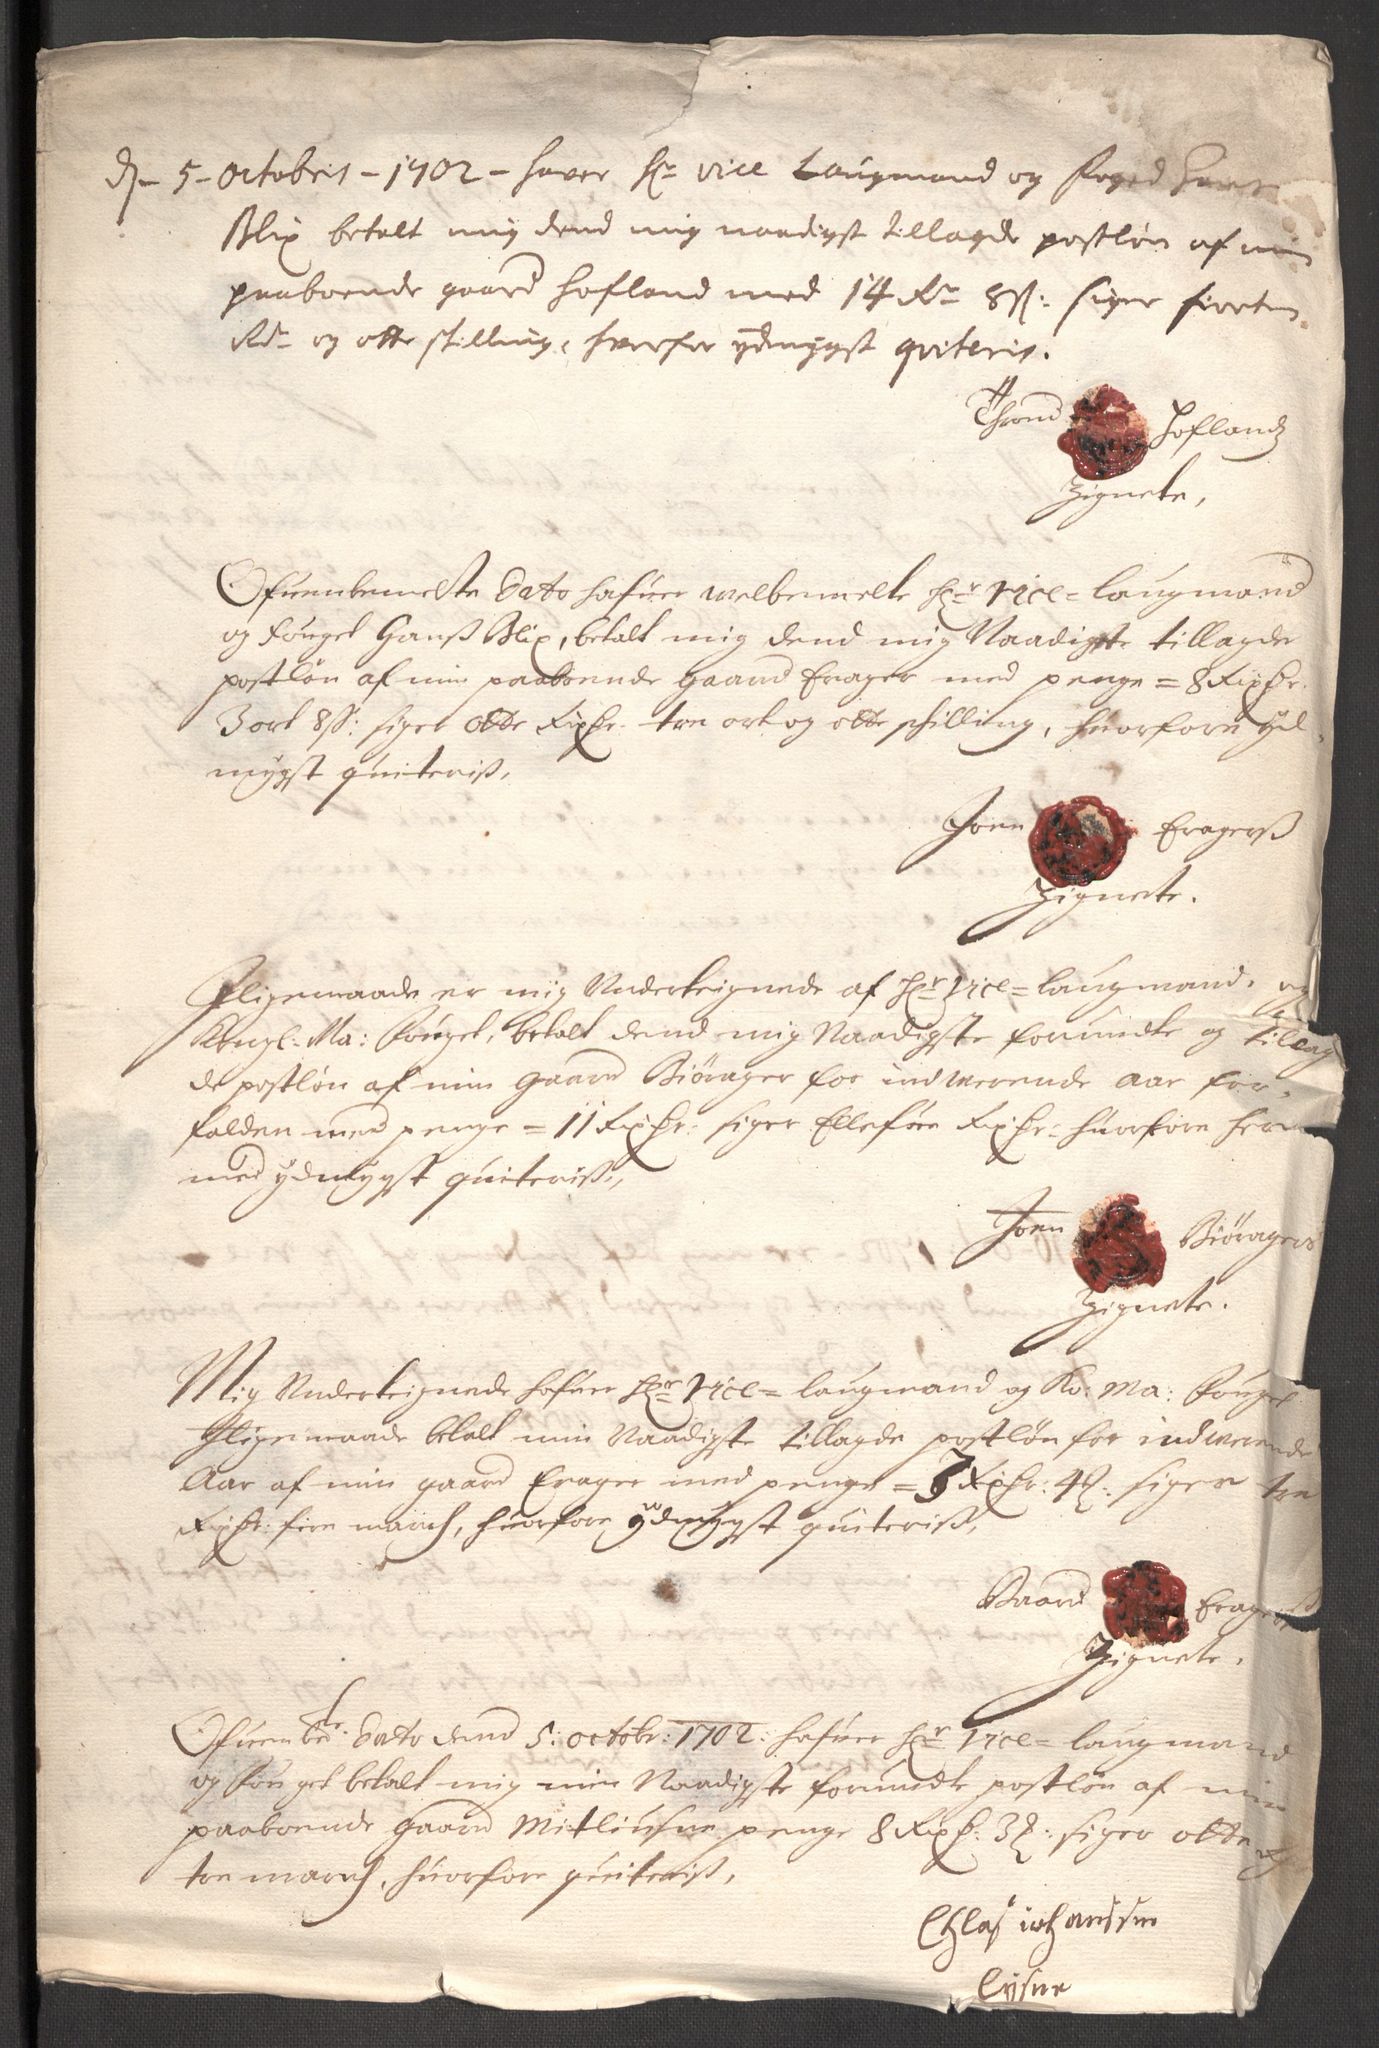 d. 5 Octobris - 1702 - haver Hr. vice Laugmand og Foged Hans
Blix betalt mig dend mig naadigst tillagde postløn af min
paaboende gaard Hofland med 14 Rdr 8 ß: siger fiorten
Rdr og otte skilling, hvorfor ydmygst qviteris.
Thrond Hoflandz
Zignete,
Ofuenbemelte Dato hafuer welbemelte Hr: Vice= laugmand
og Fouget Hanß Blix, betalt mig dend mig Naadigste tillagde
postløn af min paaboende gaard Erager med penge = 8 Rixdr.
3 ort 8 ß: siger otte Rixdr. tre ort og otte schilling, huorfore yd-
mygst quiteriß,
Joen Eragerß
Zignete.
Jligemaade er mig Underteignede af Hr: Vice= laugmand. og
Kongl: Ma: Fouget, betalt dend mig Naadigste forundte og tillag
de postløn af min gaard Biørager for indwerende aar for-
falden med penge = 11 Rixdr: siger Ellefue Rixdr: huorfore her
med ydmygst quiteriß,
Joen Biøragers
Zignete.
Mig Underteignede hafuer Hr: Vice= laugmand og Ko: Ma: Fouget
Jligemaade betalt min Naadigste tillagde postløn for indwerende
Aar af min gaard Erager med penge = 3 Rixdr: 4 ꝶ: siger tre
Rixdr: fire march, huorfore ydmygst quiteriß,
Baard Eragerß
Zignete.
Ofuenbte: Dato dend 5: octobr: 1702: hafuer Hr: Vice= laugmand
og Fouget betalt mig min Naadigste forundte postløn af min
paaboende gaard Mitliusne penge 8 Rixd. 3 ꝶ: siger otte og
tre march, huorfore quiteriß,
Ehlaß iohanssen
Lysne